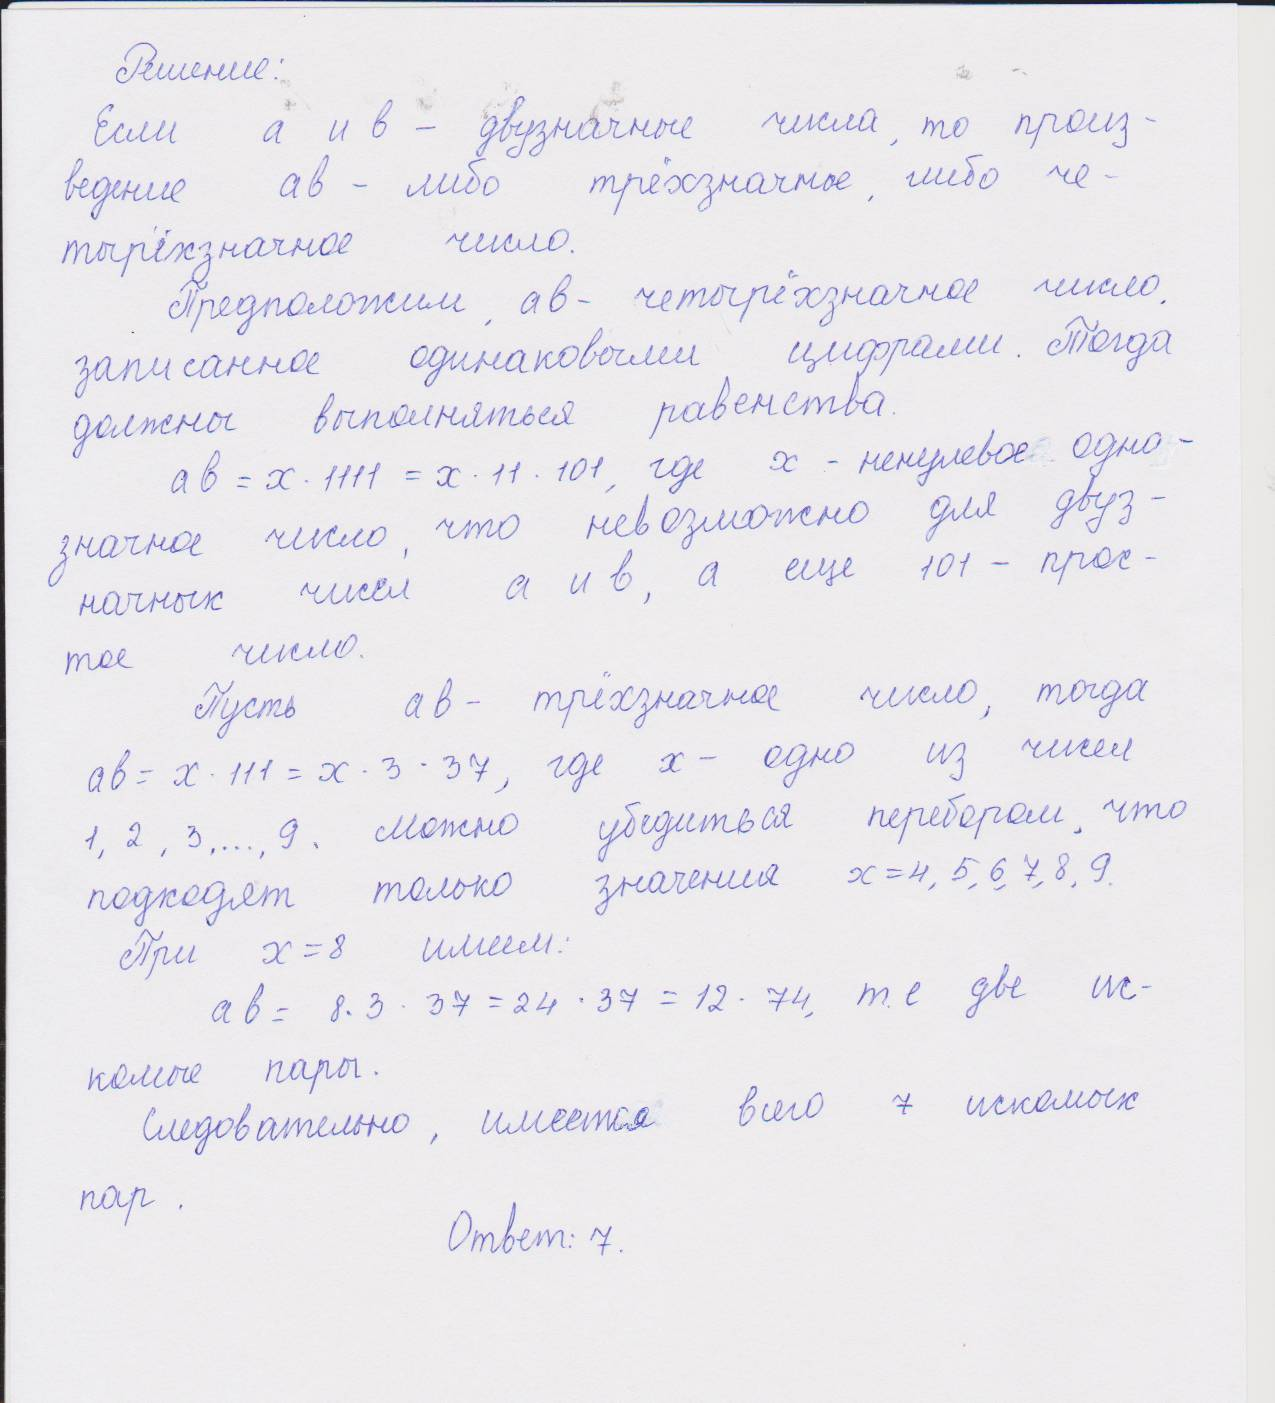 Решение:
Если а и в - двузначные числа, то произ-
ведение ав - либо трёхзначное, либо че-
тырёхзначное число.
Предположим, ав - четырёхзначное число,
записанное одинаковыми цифрами. Тогда
должны выполняться равенства.
ав = х · 1111 = х · 11 · 101, где х - ненулевое одно-
значное число, что невозможно для двуз-
начных чисел а и в, а еще 101 - прос-
тое число.
Пусть ав - трёхзначное число, тогда
ав = х · 111 = х · 3 · 37, где х - одно из чисел
1, 2, 3, ..., 9. Можно убедиться перебором, что
подходят только значения х = 4, 5, 6, 7, 8, 9.
При х = 8 имеем:
ав = 8 · 3 · 37 = 24 · 37 = 12 · 74, т.е две ис-
комые пары.
Следовательно, имеется всего 7 искомых
пар.
Ответ: 7.